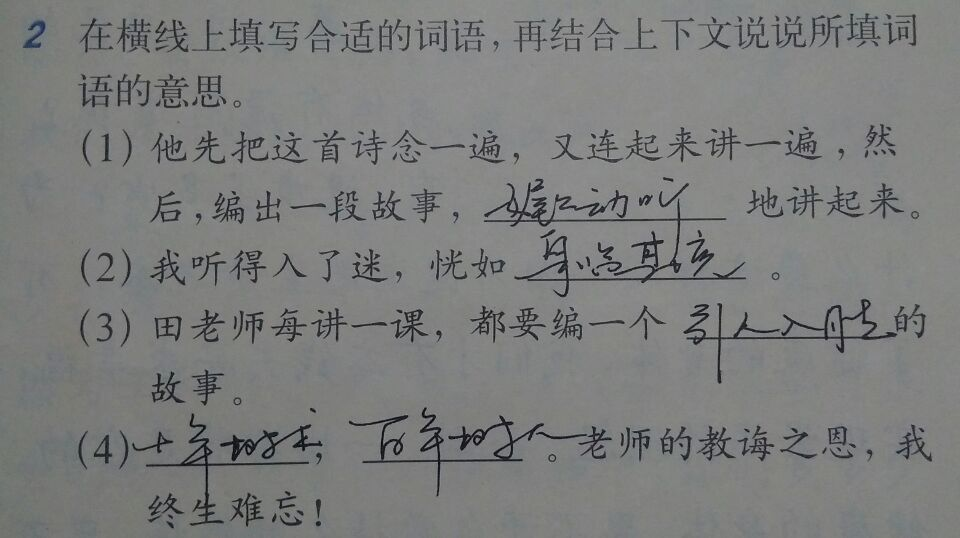 2 在横线上填写合适的词语，再结合上下文说说所填词
语的意思。
(1) 他先把这首诗念一遍，又连起来讲一遍，然
后，编出一段故事，娓娓动听 地讲起来。
(2) 我听得入了迷，恍如 身临其境 。
(3) 田老师每讲一课，都要编一个 引人入胜 的
故事。
(4) 十年树木，百年树人 。老师的教诲之恩，我
终生难忘！